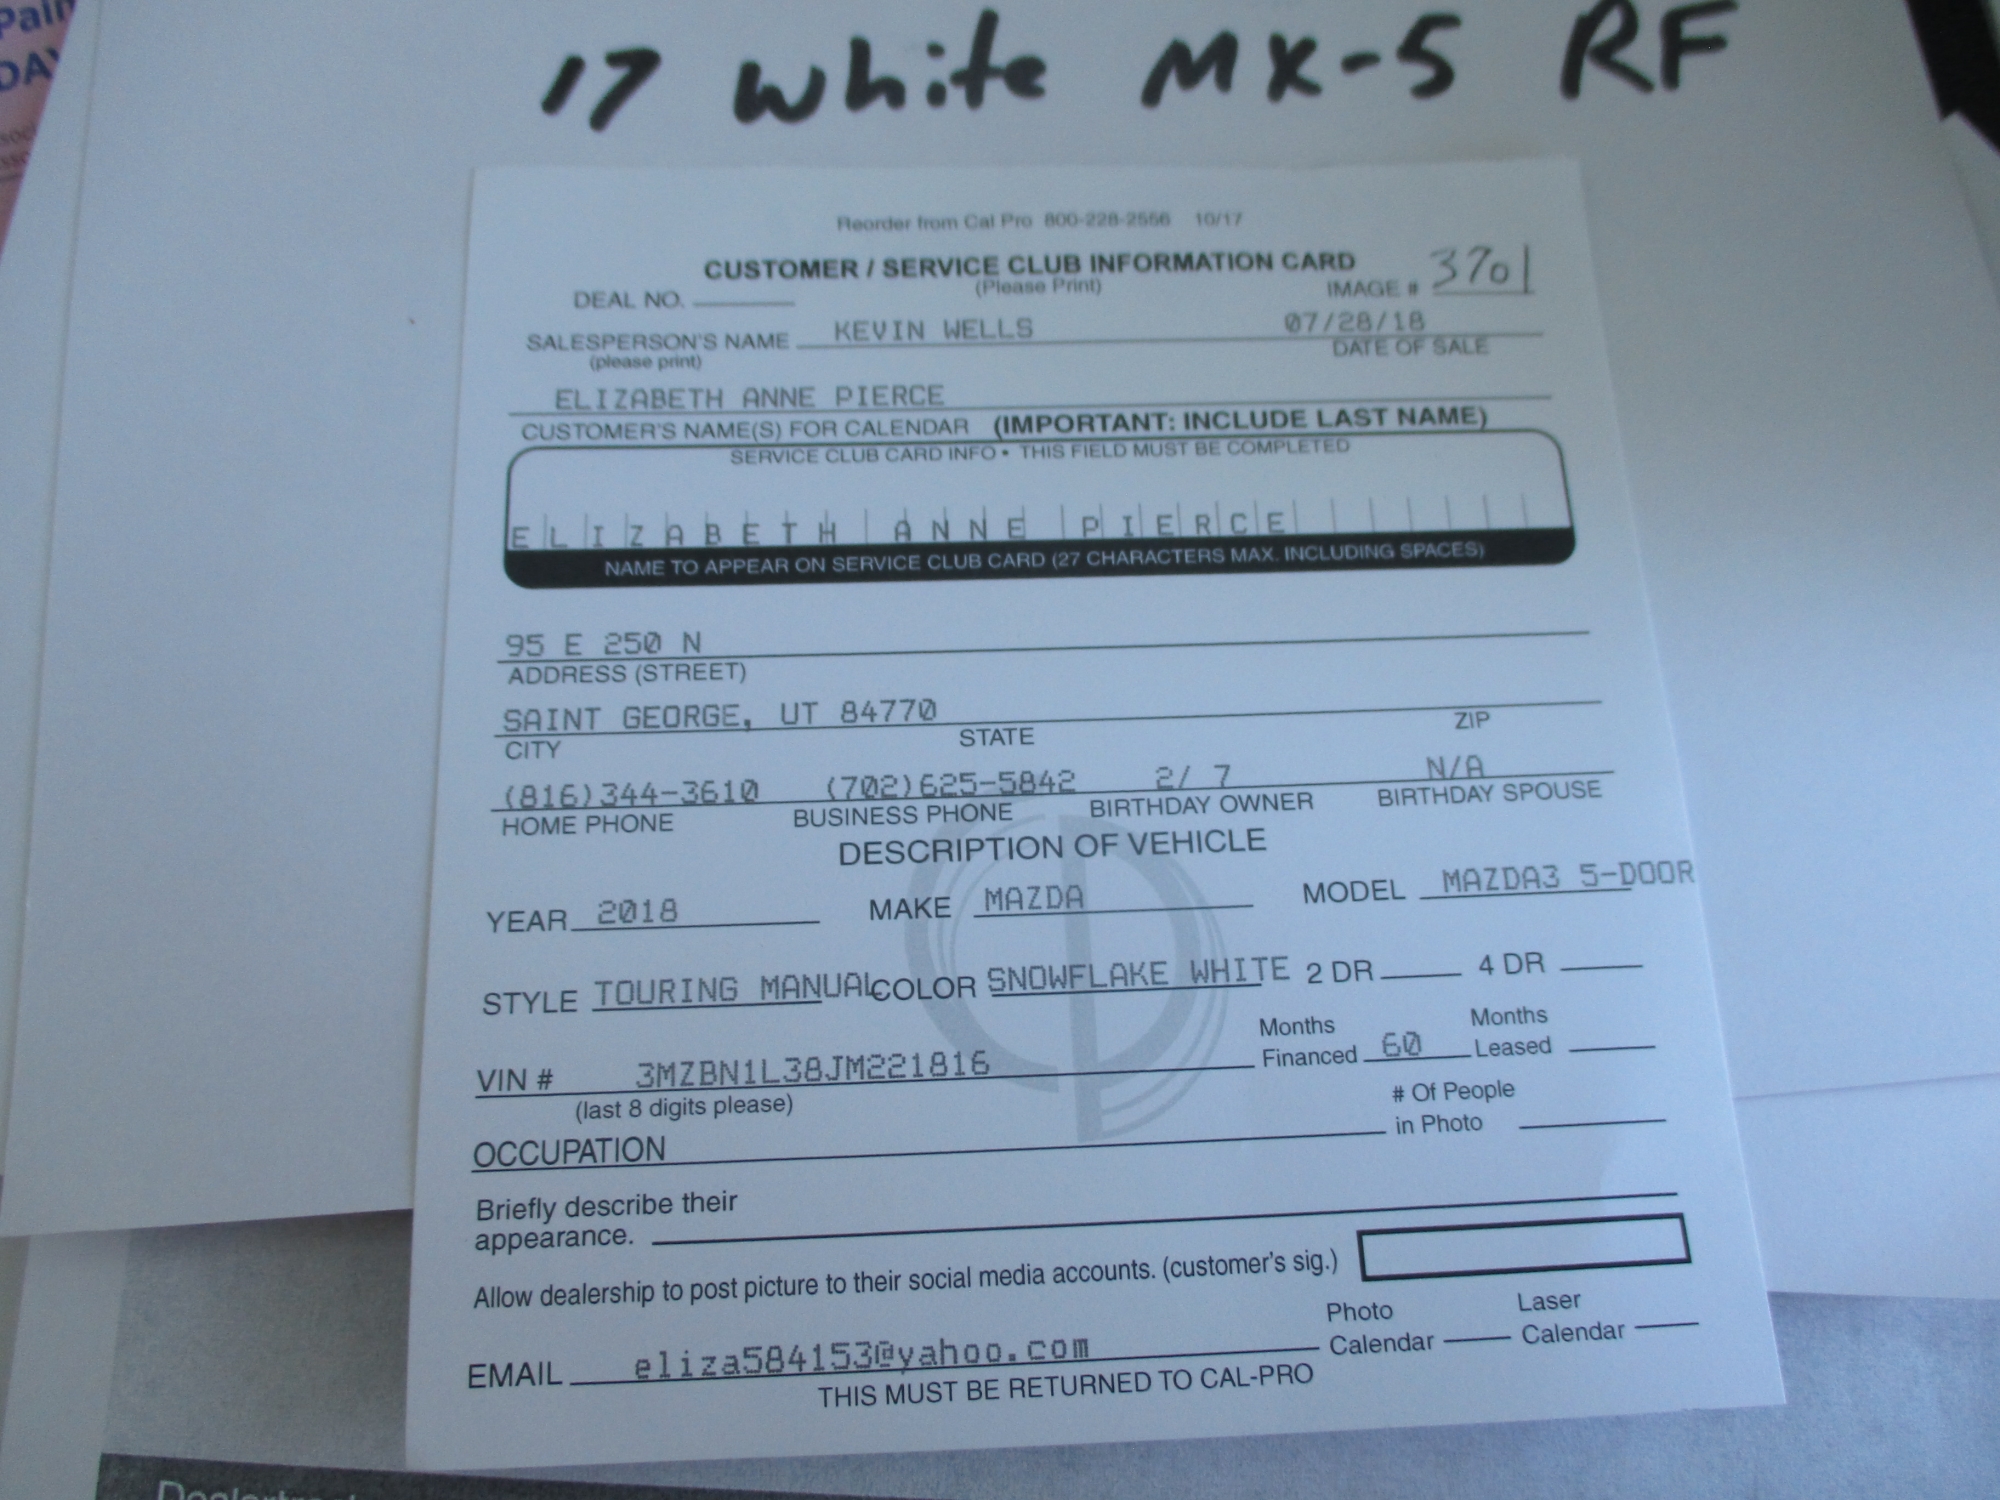 Pain
DAY
17 White MX-5 RF
Reorder from Cal Pro 800-228-2556 10/17
CUSTOMER / SERVICE CLUB INFORMATION CARD
(Please Print)
DEAL NO. IMAGE # 3701
SALESPERSON'S NAME KEVIN WELLS 07/28/18
(please print) DATE OF SALE
ELIZABETH ANNE PIERCE
CUSTOMER'S NAME(S) FOR CALENDAR (IMPORTANT: INCLUDE LAST NAME)
SERVICE CLUB CARD INFO • THIS FIELD MUST BE COMPLETED
ELIZABETH ANNE PIERCE
NAME TO APPEAR ON SERVICE CLUB CARD (27 CHARACTERS MAX. INCLUDING SPACES)
95 E 250 N
ADDRESS (STREET)
SAINT GEORGE, UT 84770
CITY STATE ZIP
(816)344-3610 (702)625-5842 2/ 7 N/A
HOME PHONE BUSINESS PHONE BIRTHDAY OWNER BIRTHDAY SPOUSE
DESCRIPTION OF VEHICLE
YEAR 2018 MAKE MAZDA MODEL MAZDA3 5-DOOR
STYLE TOURING MANUAL COLOR SNOWFLAKE WHITE 2 DR 4 DR
Months Months
VIN # 3MZBN1L38JM221816 Financed 60 Leased
(last 8 digits please) # Of People
OCCUPATION in Photo
Briefly describe their
appearance.
Allow dealership to post picture to their social media accounts. (customer's sig.)
Photo Laser
EMAIL eliza584153@yahoo.com Calendar Calendar
THIS MUST BE RETURNED TO CAL-PRO